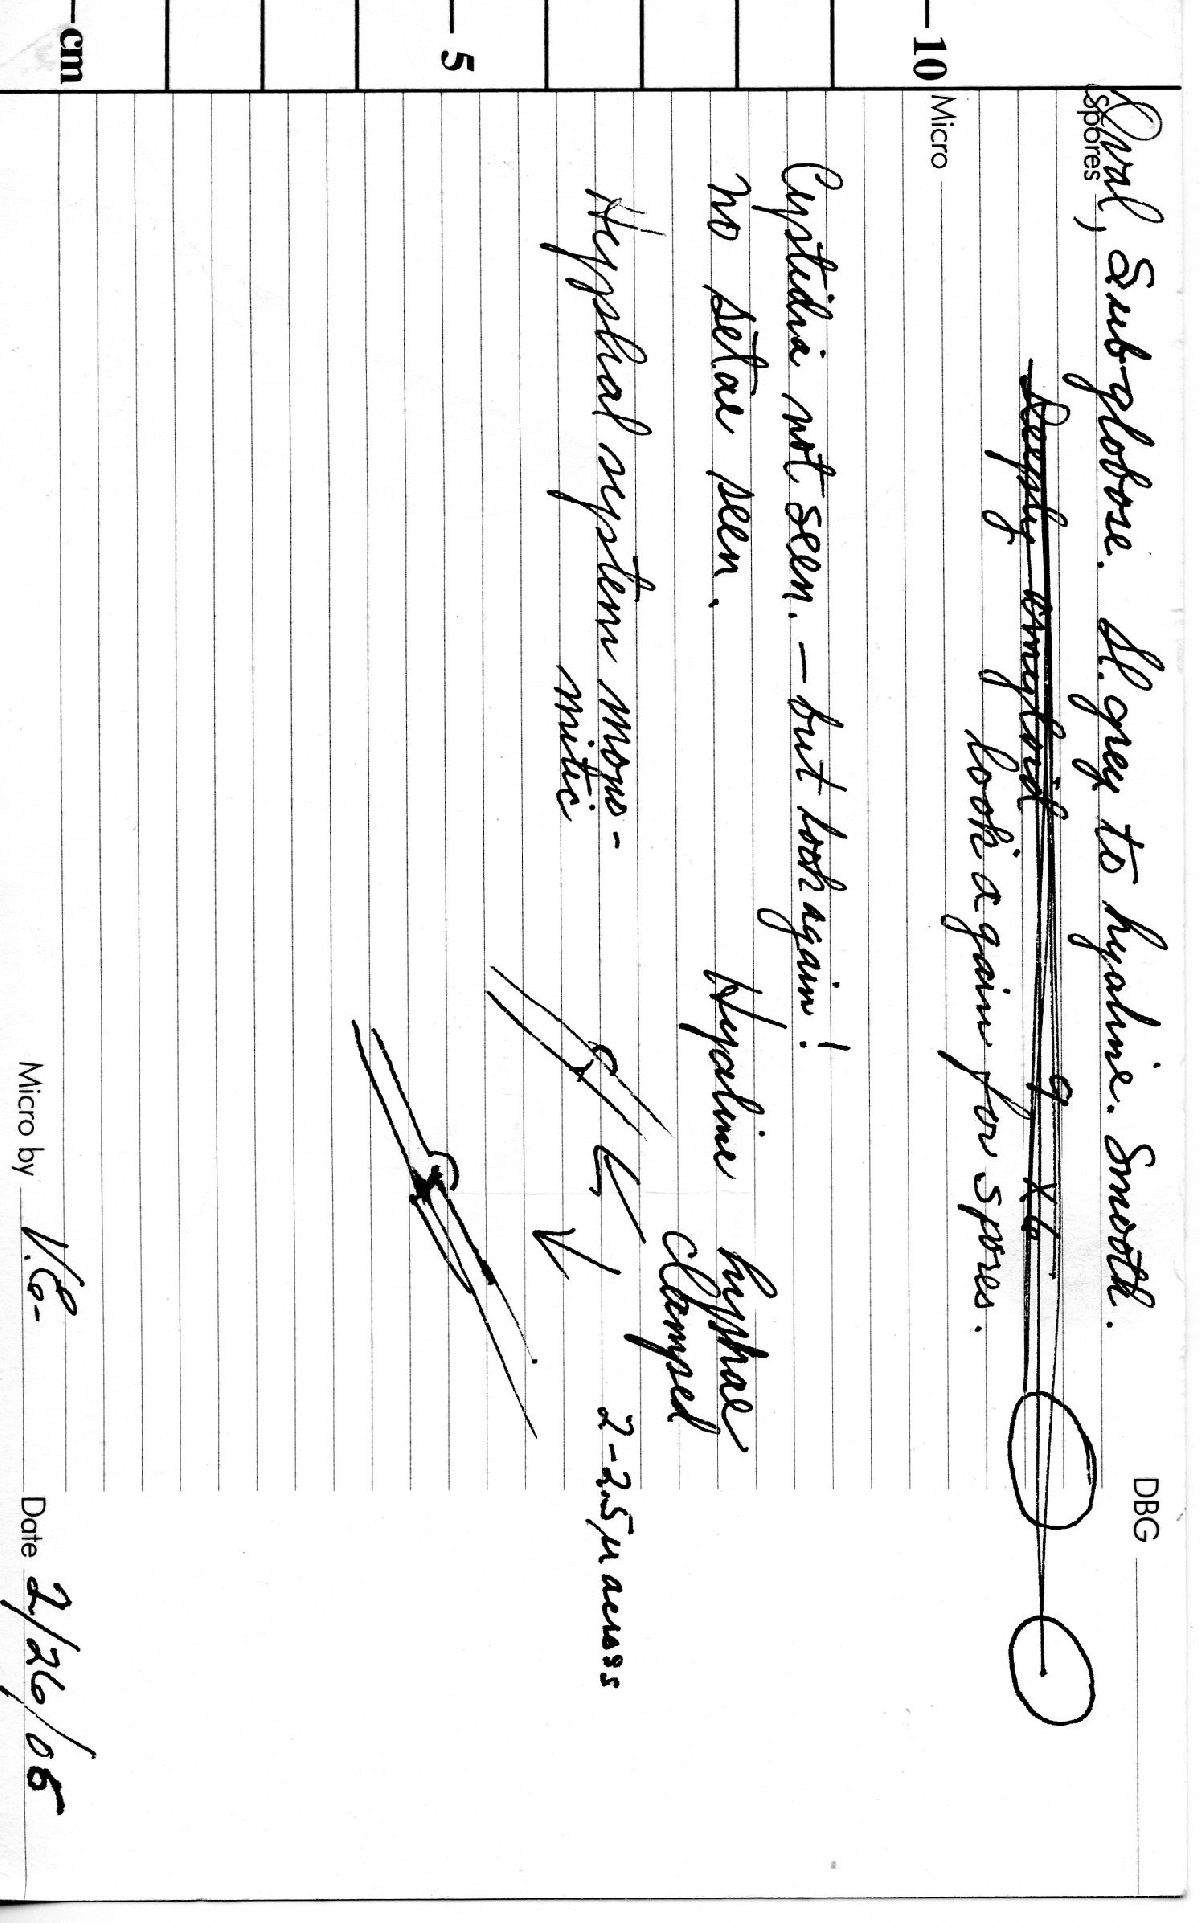 DBG
Spores Oval, Subglobose. Sl. grey to hyaline. Smooth.
Deeply amyloid 9 x 6
look again for spores.
Micro
Cystidia not seen. — but look again!
no setae seen. Hyaline hyphae
clamped
Hyphal system mono-
mitic
2-2.5µ across
Micro by V.E. Date 2/26/08
cm 5 10